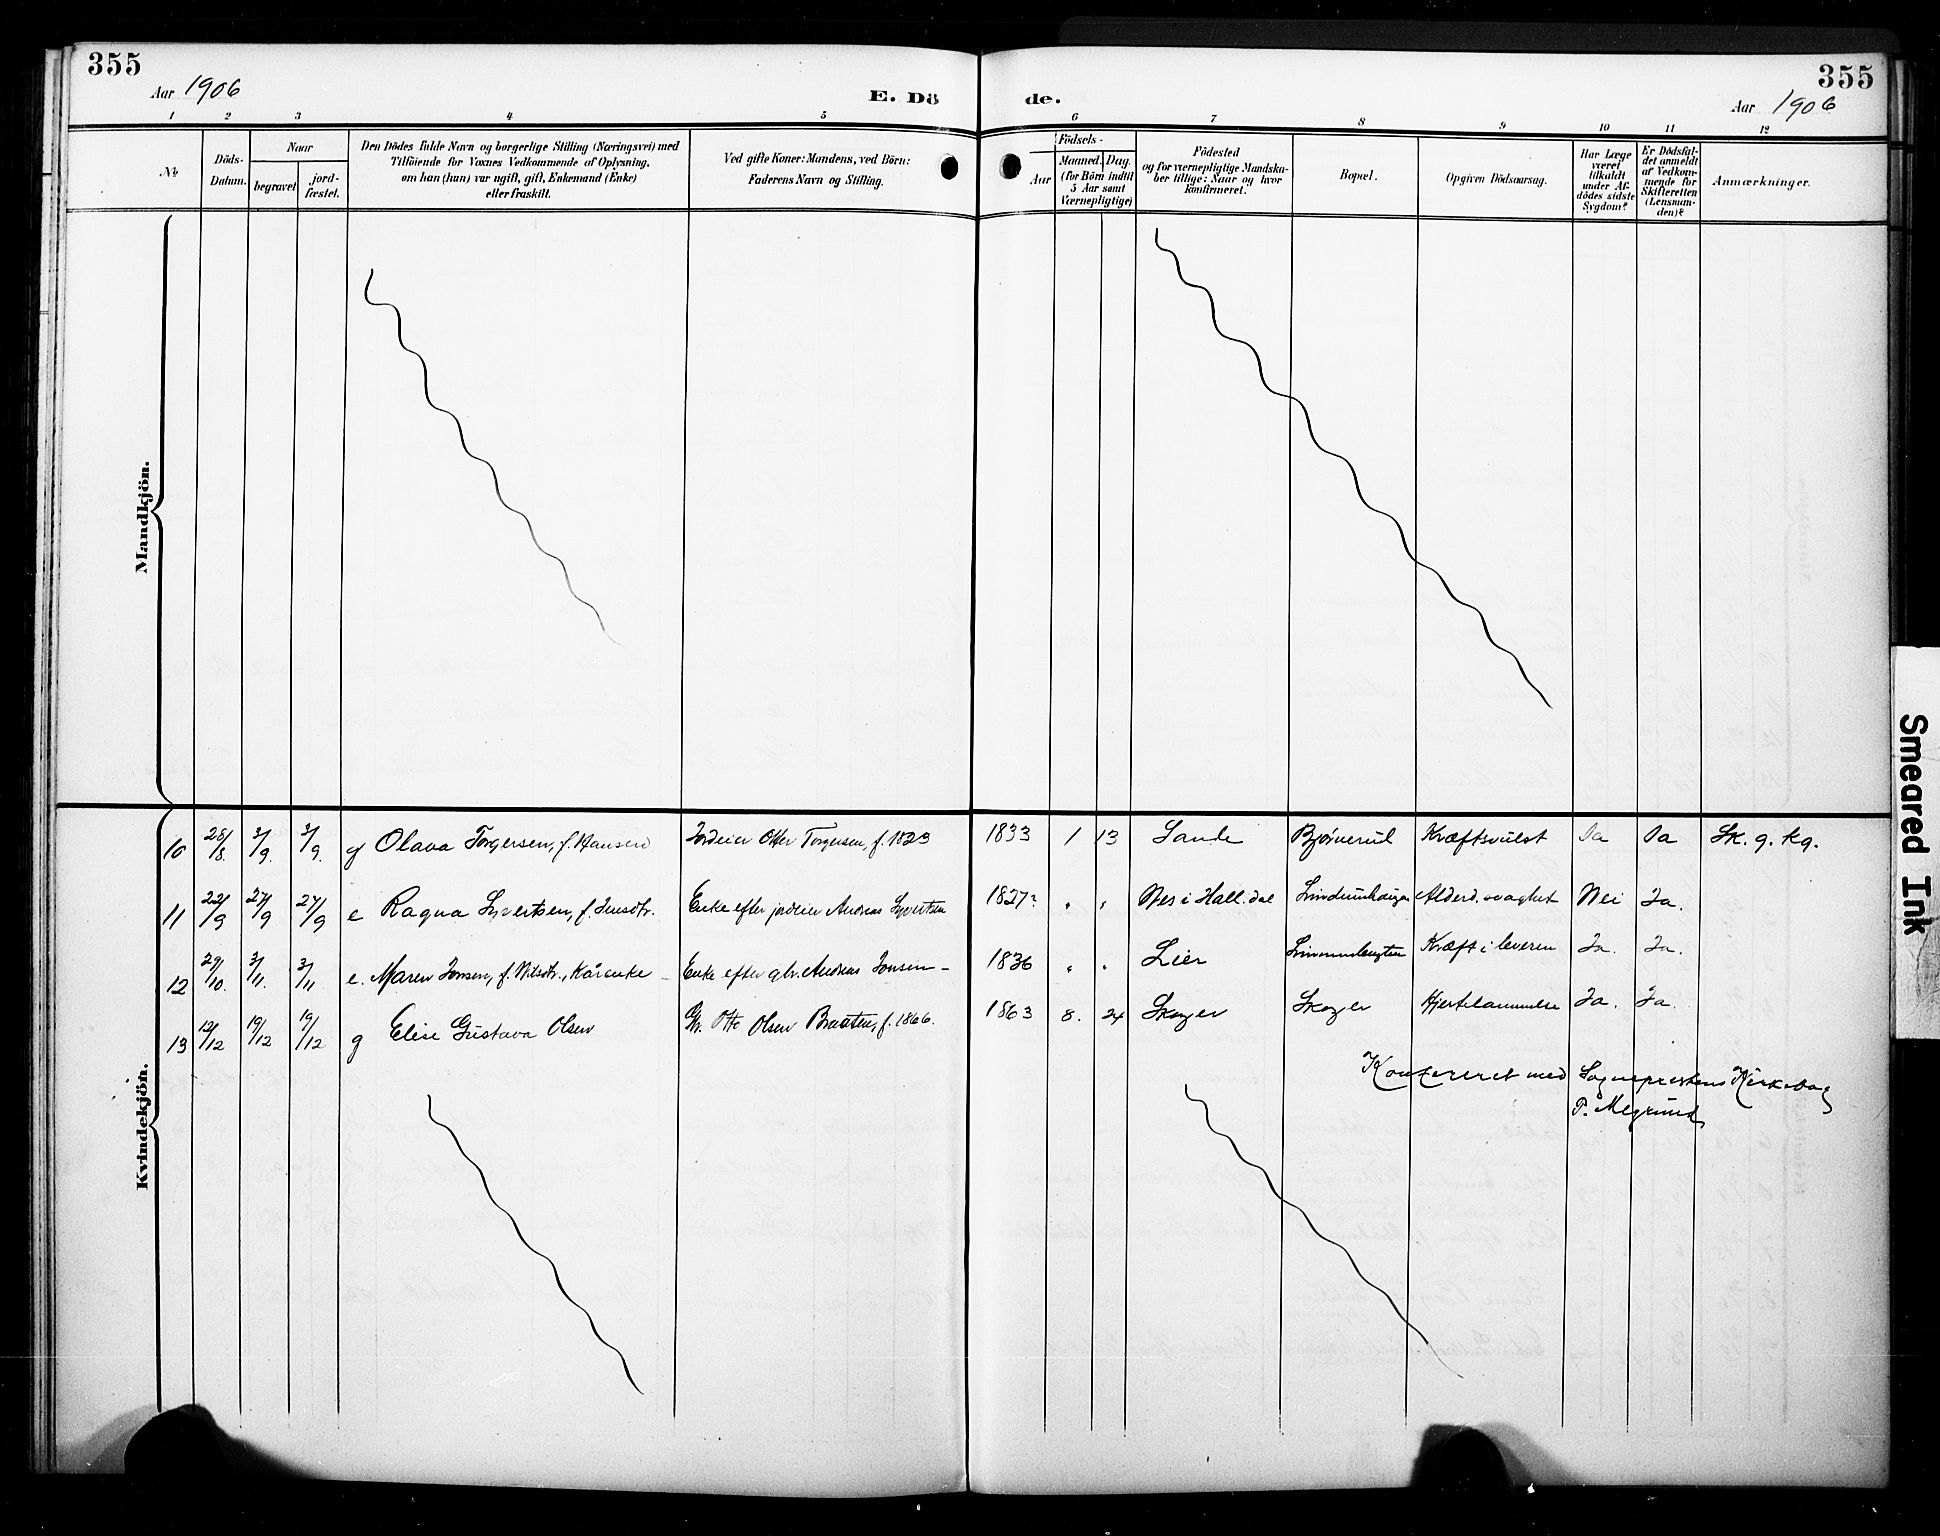 355
Aar 1906
E. Dö
de.
Aar 1906
355
1 2 3 4 5 6 7 8 9 10 11 12
No
Döds-
Datum.
Naar
begravet
jord-
fæstet.
Den Dödes fulde Navn og borgerlige Stilling (Næringsvei) med
Tilföiende for Voxnes Vedkommende af Oplysning,
om han (hun) var ugift, gift, Enkemand (Enke)
eller fraskilt.
Ved gifte Koner: Mandens, ved Börn:
Faderens Navn og Stilling.
Födsels-
Aar
Maaned. Dag.
(for Börn indtil
5 Aar samt
Værnepligtige)
Födested
og for værnepligtige Mandska-
ber tillige: Naar og hvor
konfirmeret.
Bopæl.
Opgiven Dödsaarsag.
Har Læge
været
tilkaldt
under Af-
dödes sidste
Sygdom?
Er Dödsfal-
det anmeldt
af Vedkom-
mende for
Skifteretten
(Lensman-
den)?
Anmærkninger.
Mandkjön.
Kvindekjön.
10 28/8. 3/9. 3/9. g Olava Torgersen, f. Hansen Jordeier Otter Torgersen, f. 1823 1833 1 13 Sande Bjørnerud Kræftsvulst Ja Ja Sk. g. kg.
11 22/9 27/9 27/9 e Ragna Syvertsen, f. Enke efter jordeier Andreas Syvertsen 1827? " " Nes i Hall.dal Alderd.svaghet Nei Ja.
12 29/10. 3/11. 3/11 e. Maren Jonsen, f. Nilsdtr., Kårenke – Enke efter Andreas Jonsen – 1836 " " Lier Kræft i leveren Ja. Ja.
13 12/12 19/12 19/12 g Elise Gustava Olsen Otto Olsen Braaten, f. 1866. 1863 8. 24 Skoger Skoger Hjertelammelse Ja. Ja.
Konfereret med Sogneprestens Kirkebog
Smeared Ink